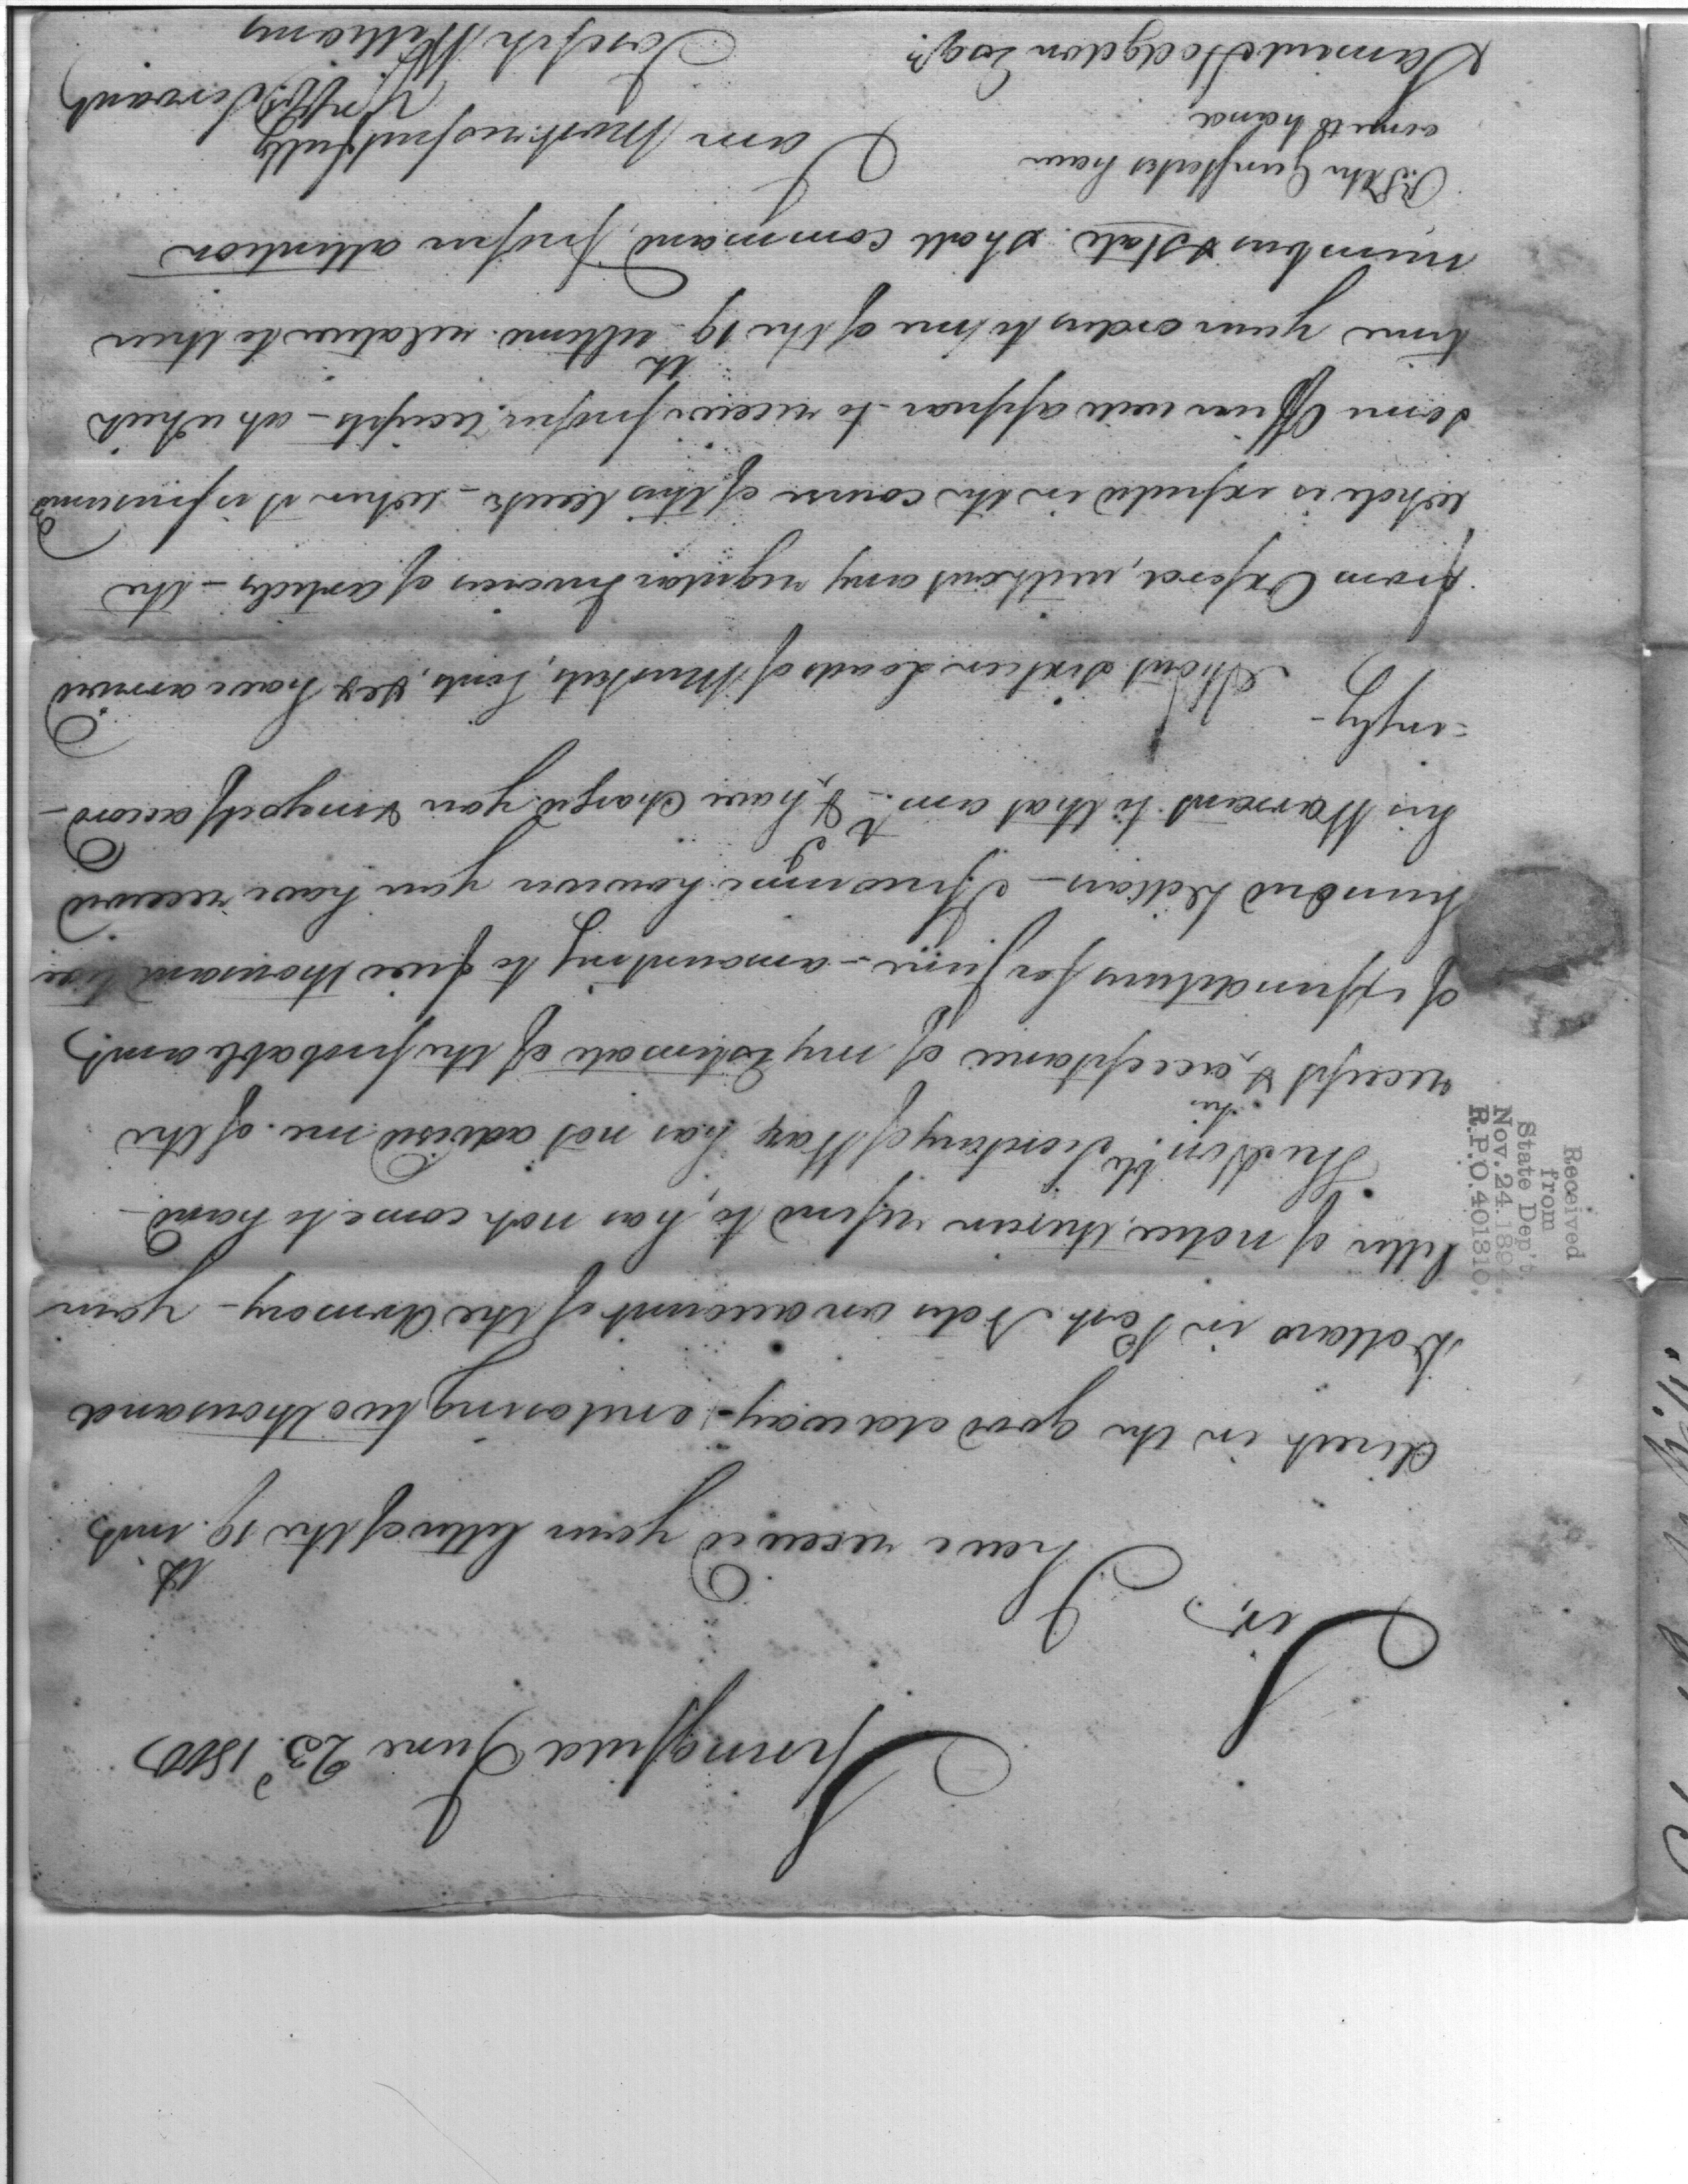 Springfield June 23.d 1800
Sir,
I have received your letter of the 19.th inst
direct in the good old way - enclosing two thousand
Dollars in Post Notes on account of the Armory - your
letter of notice, therein referred to, has not come to hand -
The Hon.ble the Secretary of War has not advised me of the
receipt & acceptance of my Estimate of the probable amt
of expenditures for June - amounting to five thousand five
hundred Dollars - I presume however you have received
his Warrant to that am.t - & have charged you & myself accord-
-ingly -
About sixteen Loads of Muskets, Tents, &c have arrived
from Oxford, without any regular Invoices of articles - the
whole is expected in the course of this week - when it is presumed
some Officer will appear to receive proper receipts - at which
time your orders to me of the 19th ultimo relative to their
numbers & state shall command proper attention
P.S. the Gunflints have
come to hand
I am most respectfully
Servant
Joseph Williams
Samuel Hodgdon Esqr.
Received
from
State Dep't.
Nov. 24. 189
R.P.O. 401310.